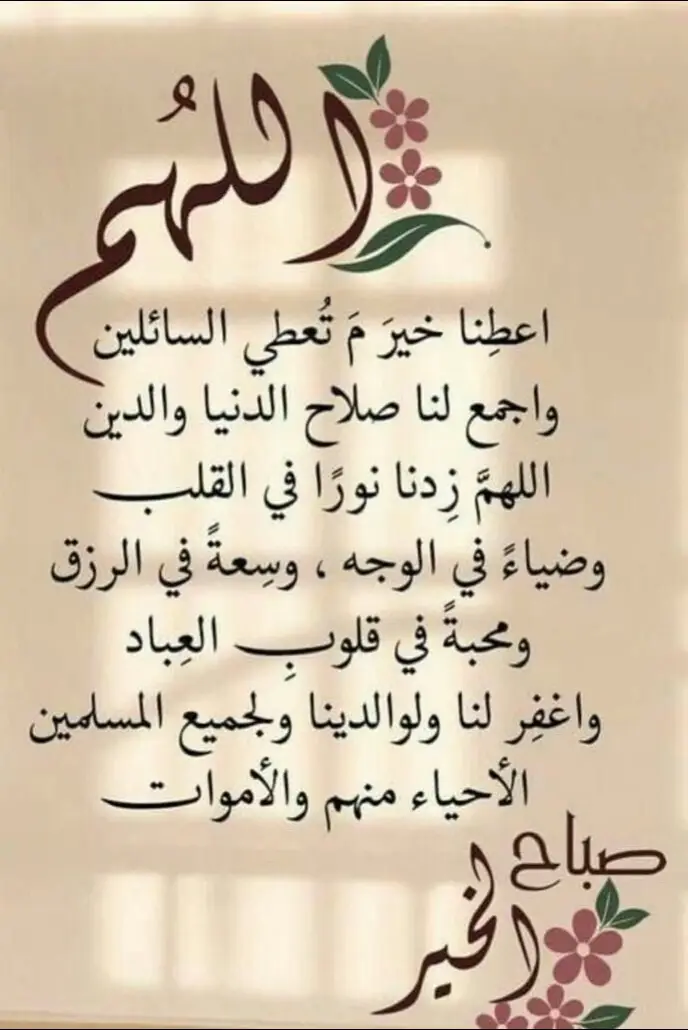 اللهُم
اعطِنا خيرَ مَ تُعطي السائلين
واجمع لنا صلاح الدنيا والدين
اللهمَّ زِدنا نورًا في القلب
وضياءً في الوجه ، وسِعةً في الرزق
ومحبةً في قلوبِ العِباد
واغفِر لنا ولوالدينا ولجميع المسلمين
الأحياء منهم والأموات
صباح
الخير